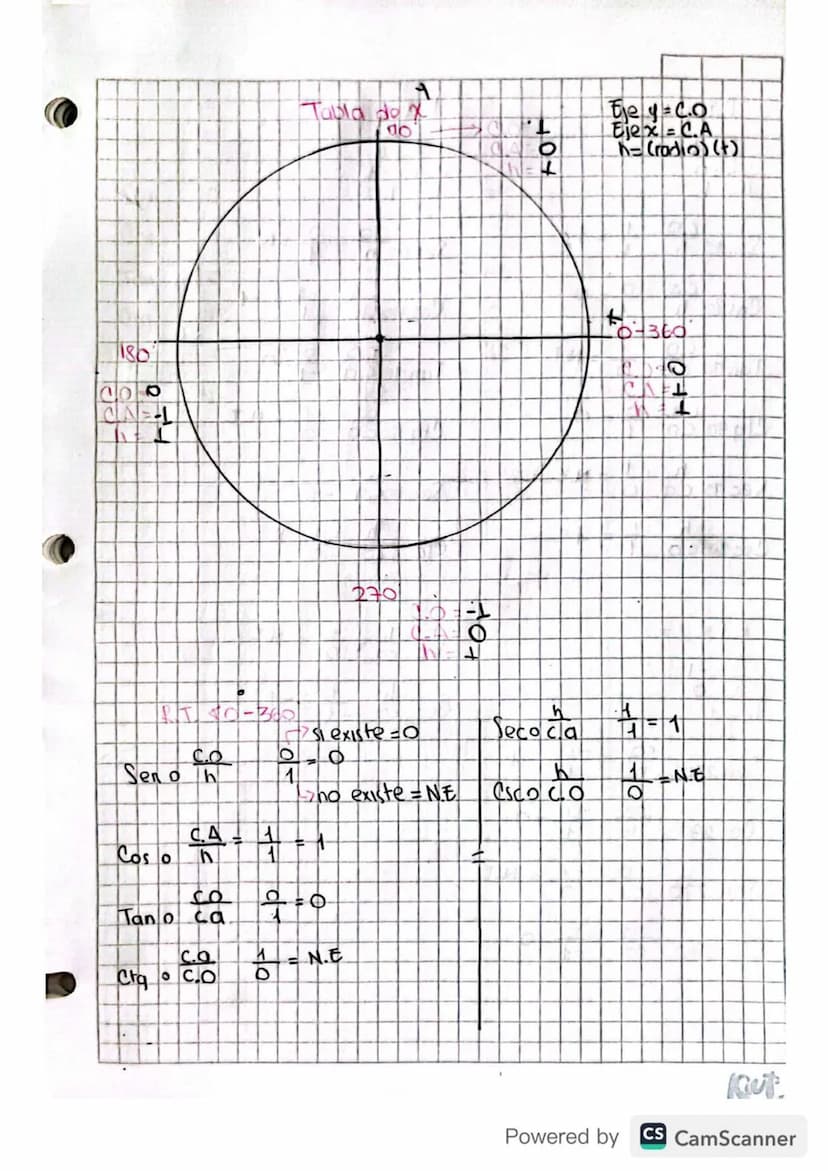 Y
Tabla do X
90
C.O: 1
C.A = 0
h = 1
Eje y = C.O
Eje x = C.A
h = (radio) (+)
180
0-360
C.O=0
CA = -1
h = 1
C.O=0
CA = 1
h = 1
270
C.O = -1
C.A = 0
h = 1
R.T. 0-360
si existe = 0
Sen 0 C.O/h 0/1 = 0
no existe = N.E
Cos 0 C.A/h = 1/1 = 1
Tan 0 co/ca 0/1 = 0
Ctg 0 c.a/c.o 1/0 = N.E
Sec 0 h/ca 1/1 = 1
Csc 0 h/c.o 1/0 = N.E
Powered by CS CamScanner